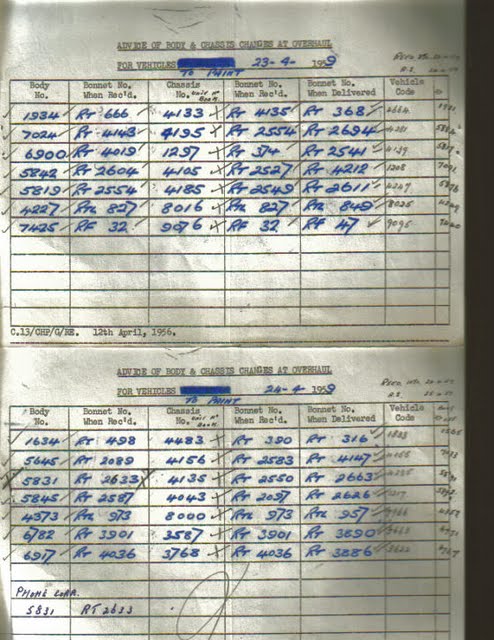 ADVICE OF BODY & CHASSIS CHANGES AT OVERHAUL
FOR VEHICLES 23-4-1959
TO PAINT
Body No. Bonnet No. When Rec'd. Chassis No. Unit No Book. Bonnet No. When Rec'd. Bonnet No. When Delivered Vehicle Code
1934 RT 666 4133 RT 4135 RT 368 2664
7024 RT 4143 4195 RT 2554 RT 2694 4281
6900 RT 4019 1297 RT 374 RT 2541 4139
5842 RT 2604 4105 RT 2527 RT 4212 1208
5819 RT 2554 4185 RT 2549 RT 2611 4247
4227 RTL 827 8016 RTL 827 RTL 849 8025
7425 RF 32 9076 RF 32 RF 47 9095
C.13/CHP/G/RE. 12th April, 1956.
ADVICE OF BODY & CHASSIS CHANGES AT OVERHAUL
FOR VEHICLES 24-4 1959
TO PAINT
Body No. Bonnet No. When Rec'd. Chassis No. Unit No Book. Bonnet No. When Rec'd. Bonnet No. When Delivered Vehicle Code
1634 RT 498 4483 RT 390 RT 316
5645 RT 2089 4156 RT 2583 RT 4147
5831 RT 2633 4135 RT 2550 RT 2663
5845 RT 2587 4043 RT 2097 RT 2626
4373 RTL 973 8000 RTL 973 RTL 957
6782 RT 3901 3587 RT 3901 RT 3890
6917 RT 4036 3768 RT 4036 RT 3886
PHONE CORR.
5831 RT 2633